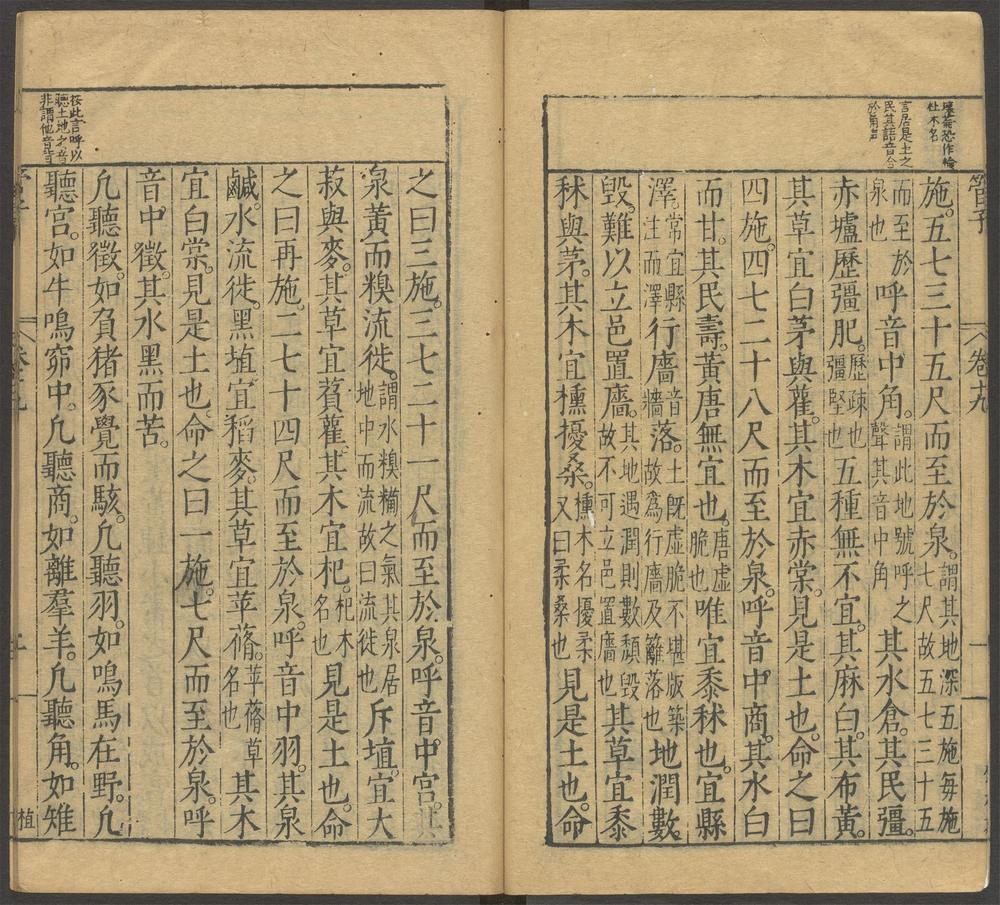 壤蒥恐作榆
杜木名
言居是土之
民其語音合
於角声
管子
卷十九
一
施。五七三十五尺而至於泉。謂其地深五施每施
七尺故五七三十五
而至於
泉也
呼音中角。謂此地號呼之
聲其音中角
其水倉。其民彊。
赤壚歷彊肥。歷疎也
彊堅也
五種無不宜。其麻白。其布黃。
其草宜白茅與雚。其木宜赤棠。見是土也。命之曰
四施。四七二十八尺而至於泉。呼音中商。其水白
而甘。其民壽。黃唐無宜也。唐虛
脆也
唯宜黍秫也。宜縣
澤。常宜縣
注而澤
行廧音
牆
落。土既虛脆不堪版築
故爲行廧及籬落也
地潤數
毀。難以立邑置廧。其地遇潤則數頹毀
故不可立邑置廧也
其草宜黍
秫與茅。其木宜櫄擾桑。櫄木名擾柔
又曰柔桑也
見是土也。命
之曰三施。三七二十一尺而至於泉。呼音中宮。其
泉黃而糗流徙。謂水糗糒之氣其泉居
地中而流故曰流徙也
斥埴宜大
菽與麥。其草宜萯雚。其木宜杞。杞木
名也
見是土也。命
之曰再施。二七十四尺而至於泉。呼音中羽。其泉
鹹。水流徙。黑埴宜稻麥。其草宜苹蓨。苹蓨草
名也
其木
宜白棠。見是土也。命之曰一施。七尺而至於泉。呼
音中徵。其水黑而苦。
凡聽徵。如負猪豕覺而駭。凡聽羽。如鳴馬在野。凡
聽宮。如牛鳴窌中。凡聽商。如離羣羊。凡聽角。如雉
按此言呼以
聽土地之音
非謂他音者
植